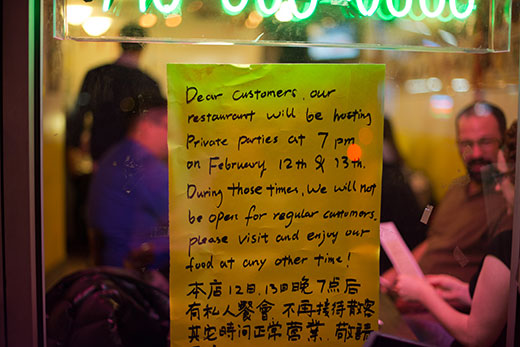 Dear Customers, our
restaurant will be hosting
Private parties at 7 pm
on February 12th & 13th.
During those times, We will not
be open for regular customers.
please visit and enjoy our
food at any other time!
本店 12日, 13日晚 7点后
有私人餐會 不再接待散客
其它时间正常营業, 敬請